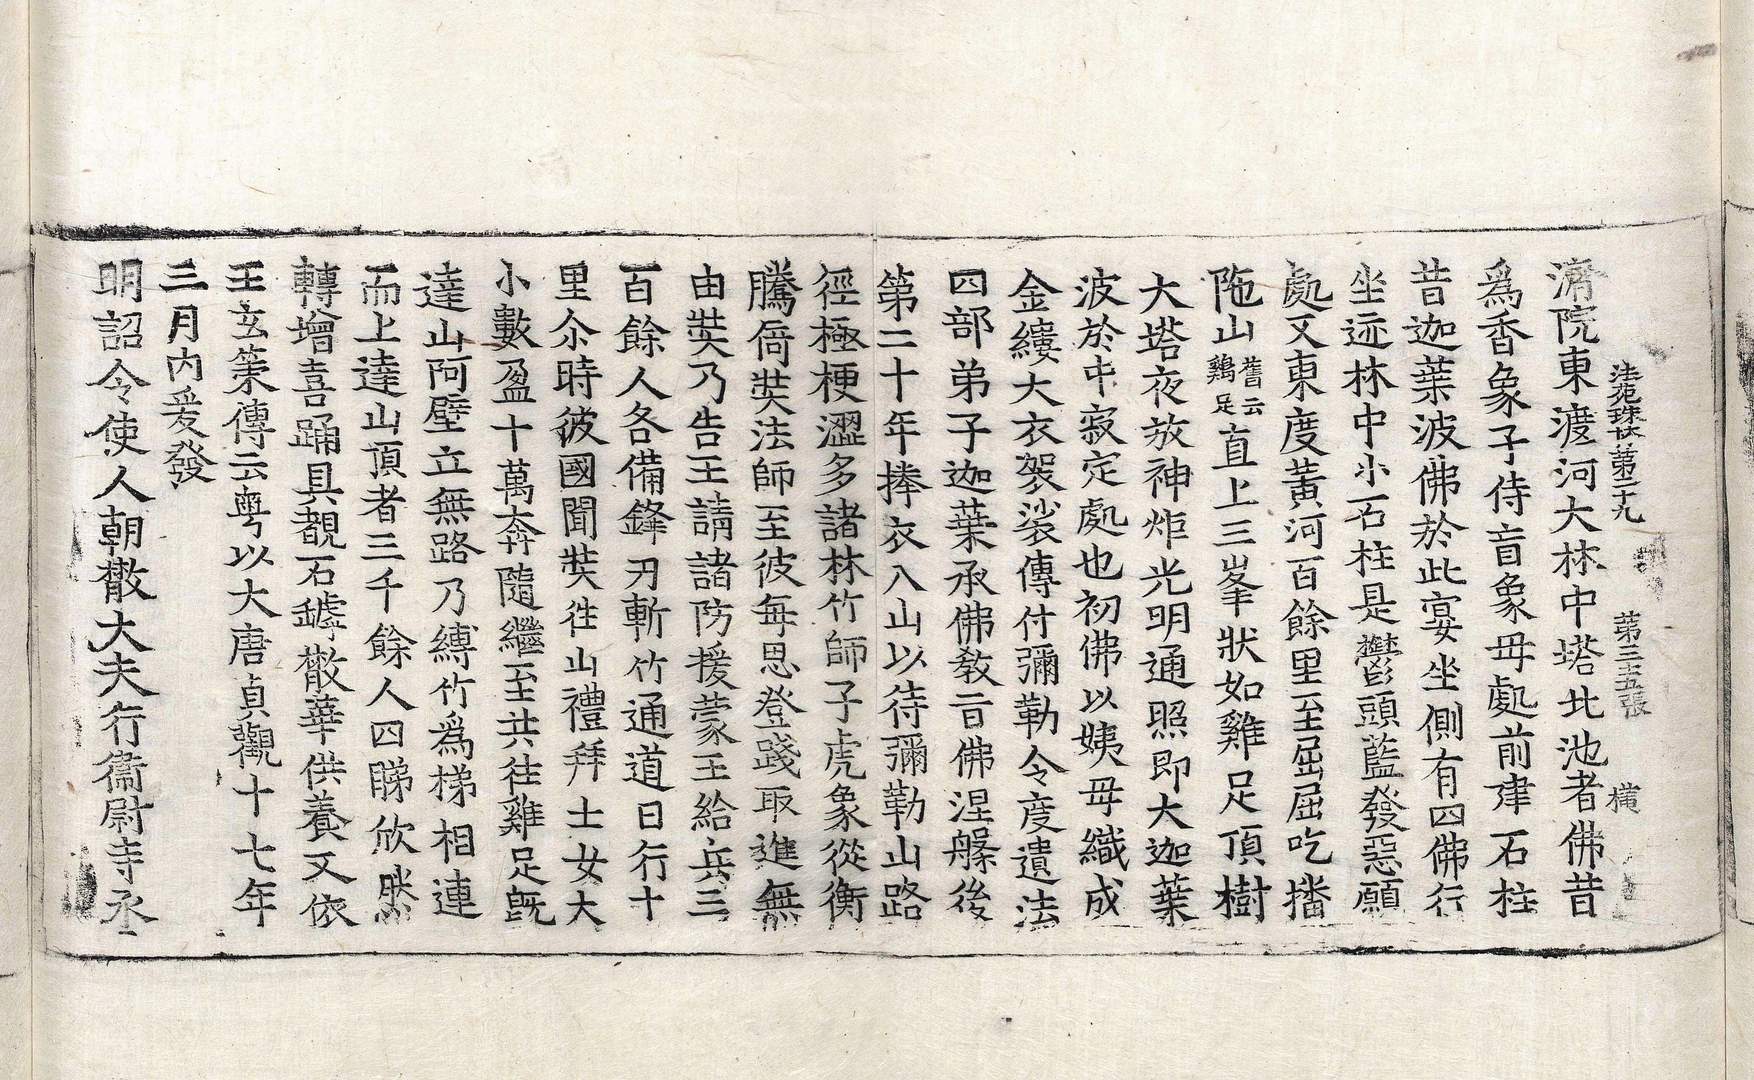 法苑珠林第二十九 第三十五張 横
濟院東渡河大林中塔北池者佛昔
爲香象子侍盲象母處前建石柱
昔迦葉波佛於此宴坐側有四佛行
坐迹林中小石柱是欝頭藍發惡願
處又東度黃河百餘里至屈屈吒播
陁山舊云鷄足直上三峯狀如雞足頂樹
大塔夜放神炬光明通照即大迦葉
波於中寂定處也初佛以姨母織成
金縷大衣袈裟傳付彌勒令度遺法
四部弟子迦葉承佛教旨佛涅槃後
第二十年捧衣入山以待彌勒山路
徑極梗澀多諸林竹師子虎象從衡
騰倚奘法師至彼每思登踐取進無
由奘乃告王請諸防援蒙王給兵三
百餘人各備鋒刃斬竹通道日行十
里尒時彼國聞奘徃山禮拜士女大
小數盈十萬奔隨繼至共往雞足旣
達山阿壁立無路乃縛竹爲梯相連
而上達山頂者三千餘人四睇欣然
轉增喜踊具覩石罅散華供養又依
王玄策傳云粵以大唐貞觀十七年
三月內爰發
明詔令使人朝散大夫行衞尉寺丞